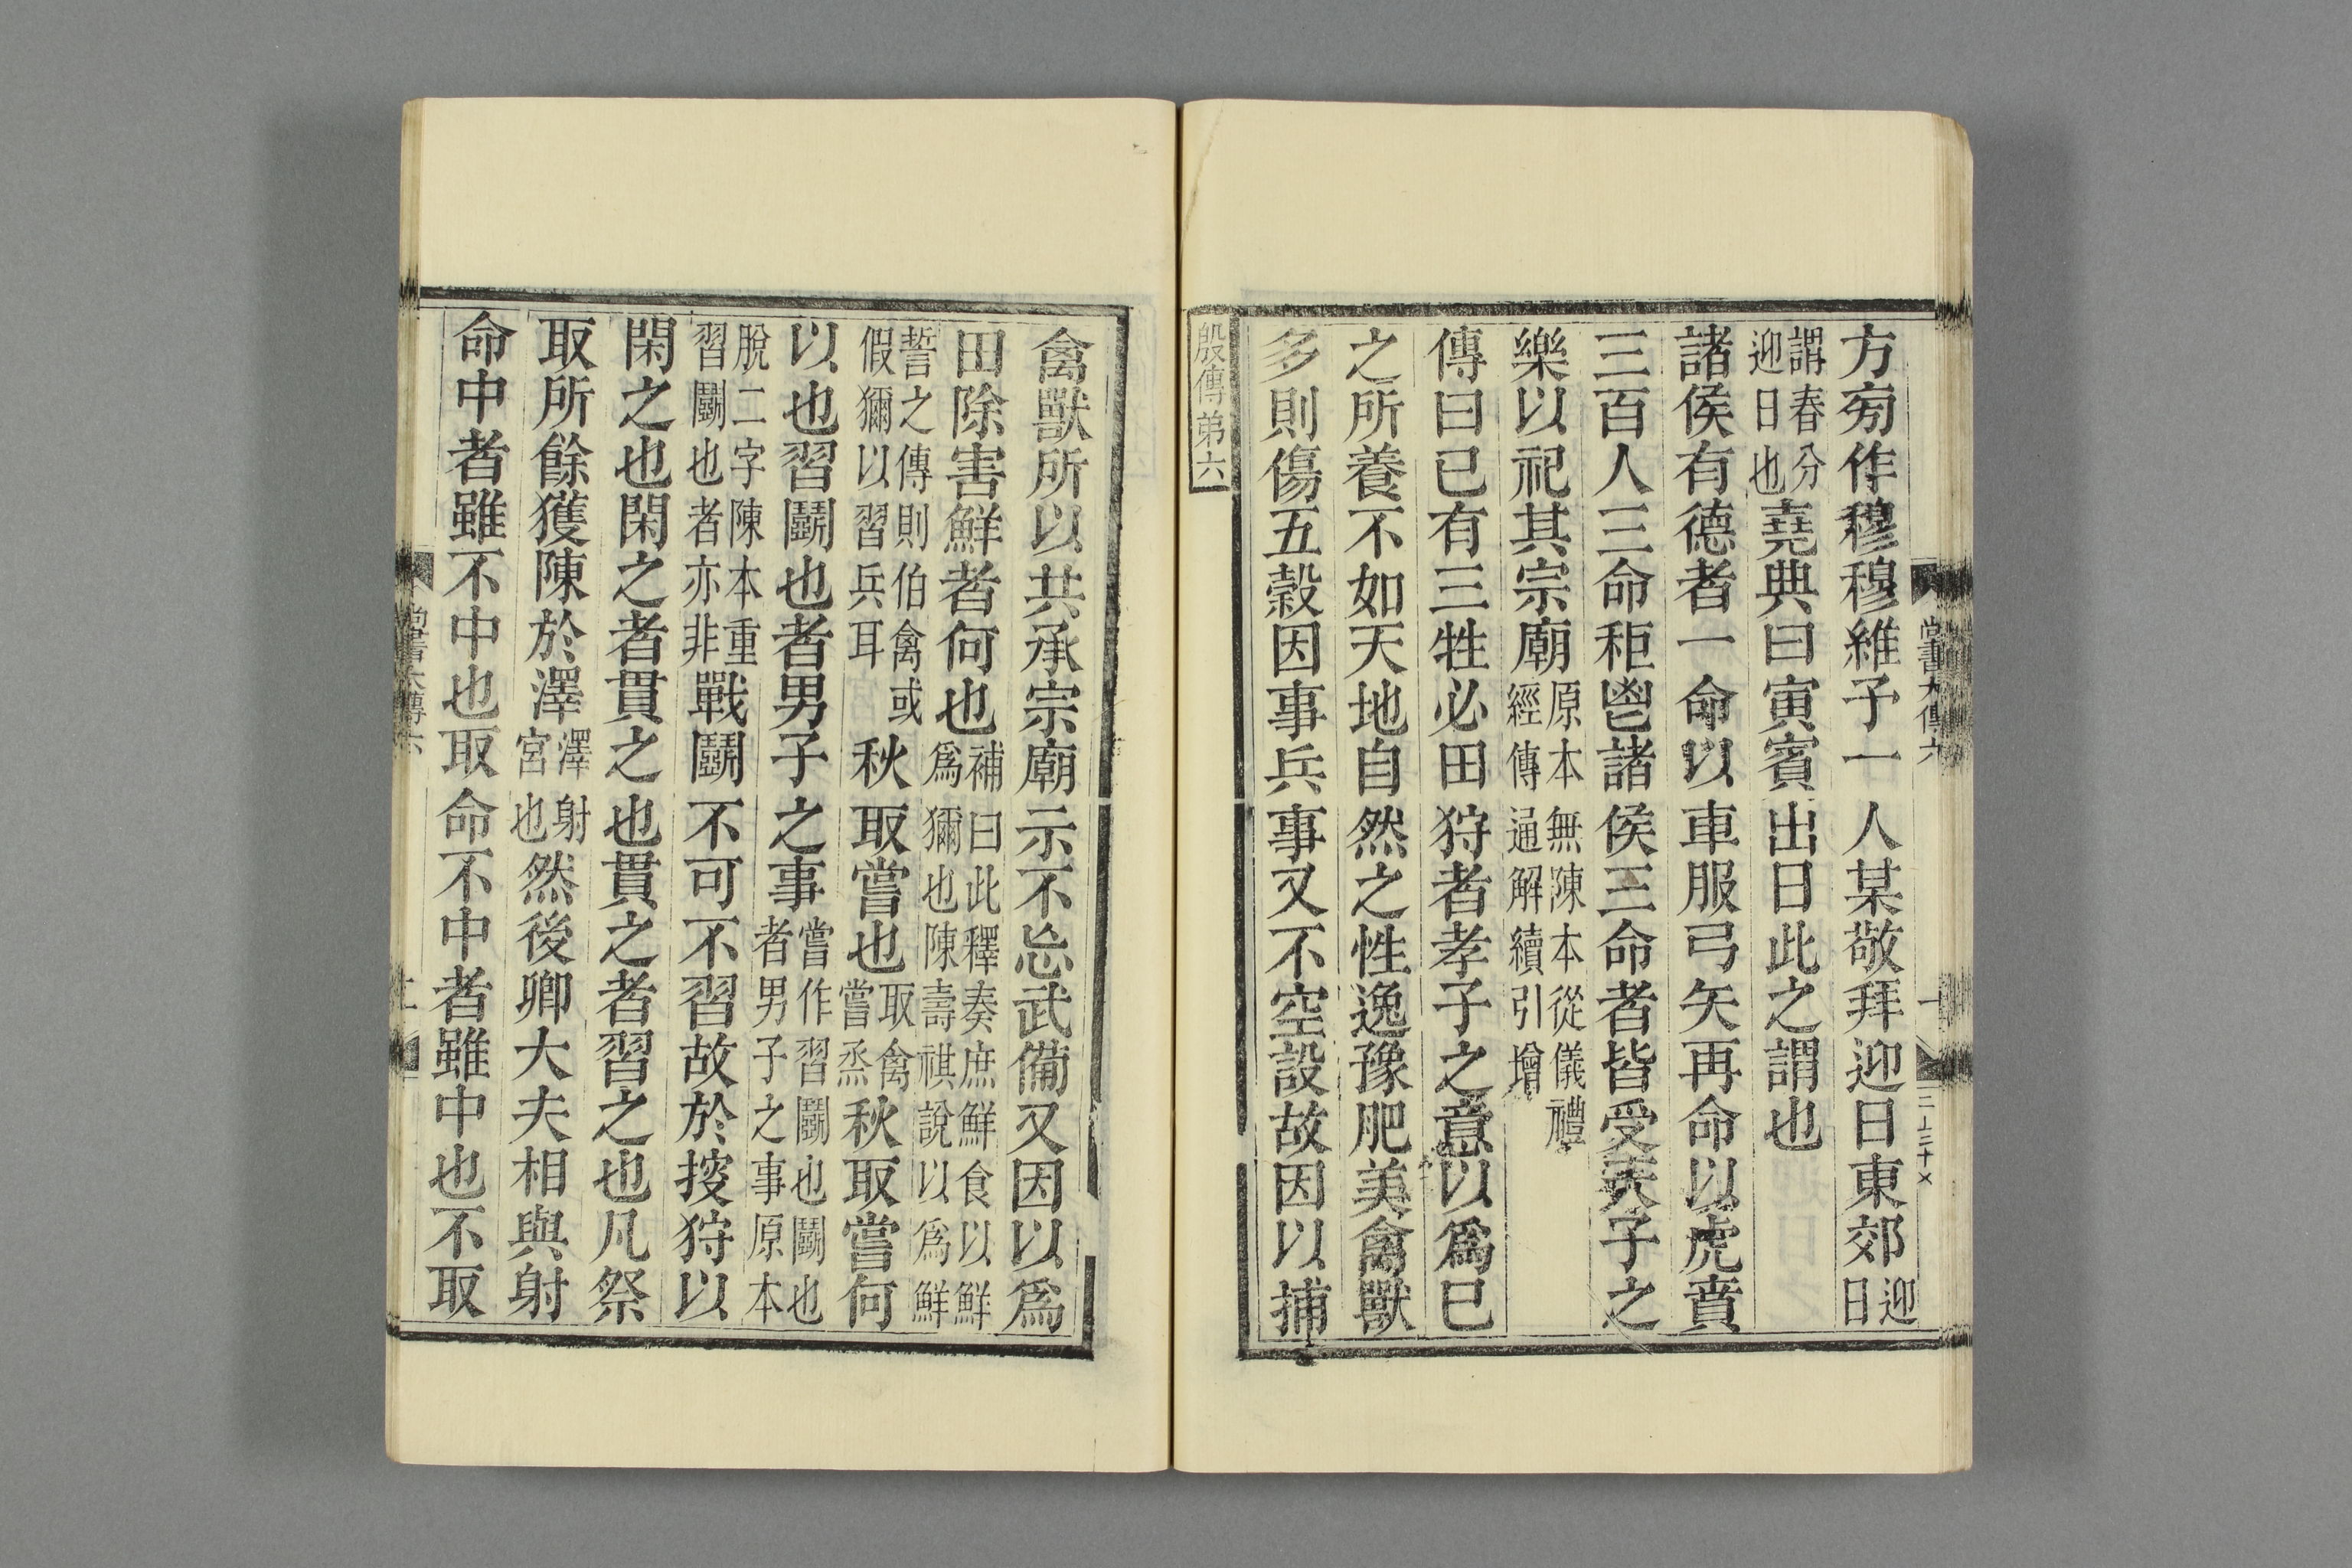 方㫄作穆穆維予一人某敬拜迎日東郊迎日
謂春分迎日也堯典曰寅賓出日此之謂也
諸侯有德者一命以車服弓矢再命以虎賁
三百人三命秬鬯諸侯三命者皆受天子之
樂以祀其宗廟原本無陳本從儀禮經傳通解續引增
傳曰已有三牲必田狩者孝子之意以爲已
之所養不如天地自然之性逸豫肥美禽獸
多則傷五穀因事兵事又不空設故因以捕
殷傳弟六
禽獸所以共承宗廟示不忘武備又因以爲
田除害鮮者何也補曰此釋奏庶鮮食以鮮爲獮也陳壽祺說以爲鮮
誓之傳則伯禽或假獮以習兵耳秋取嘗也取禽嘗烝秋取嘗何
以也習鬭也者男子之事嘗作習鬭也鬭也者男子之事原本
脫二字陳本重習鬭也者亦非戰鬭不可不習故於搜狩以
閑之也閑之者貫之也貫之者習之也凡祭
取所餘獲陳於澤澤射宮也然後卿大夫相與射
命中者雖不中也取命不中者雖中也不取